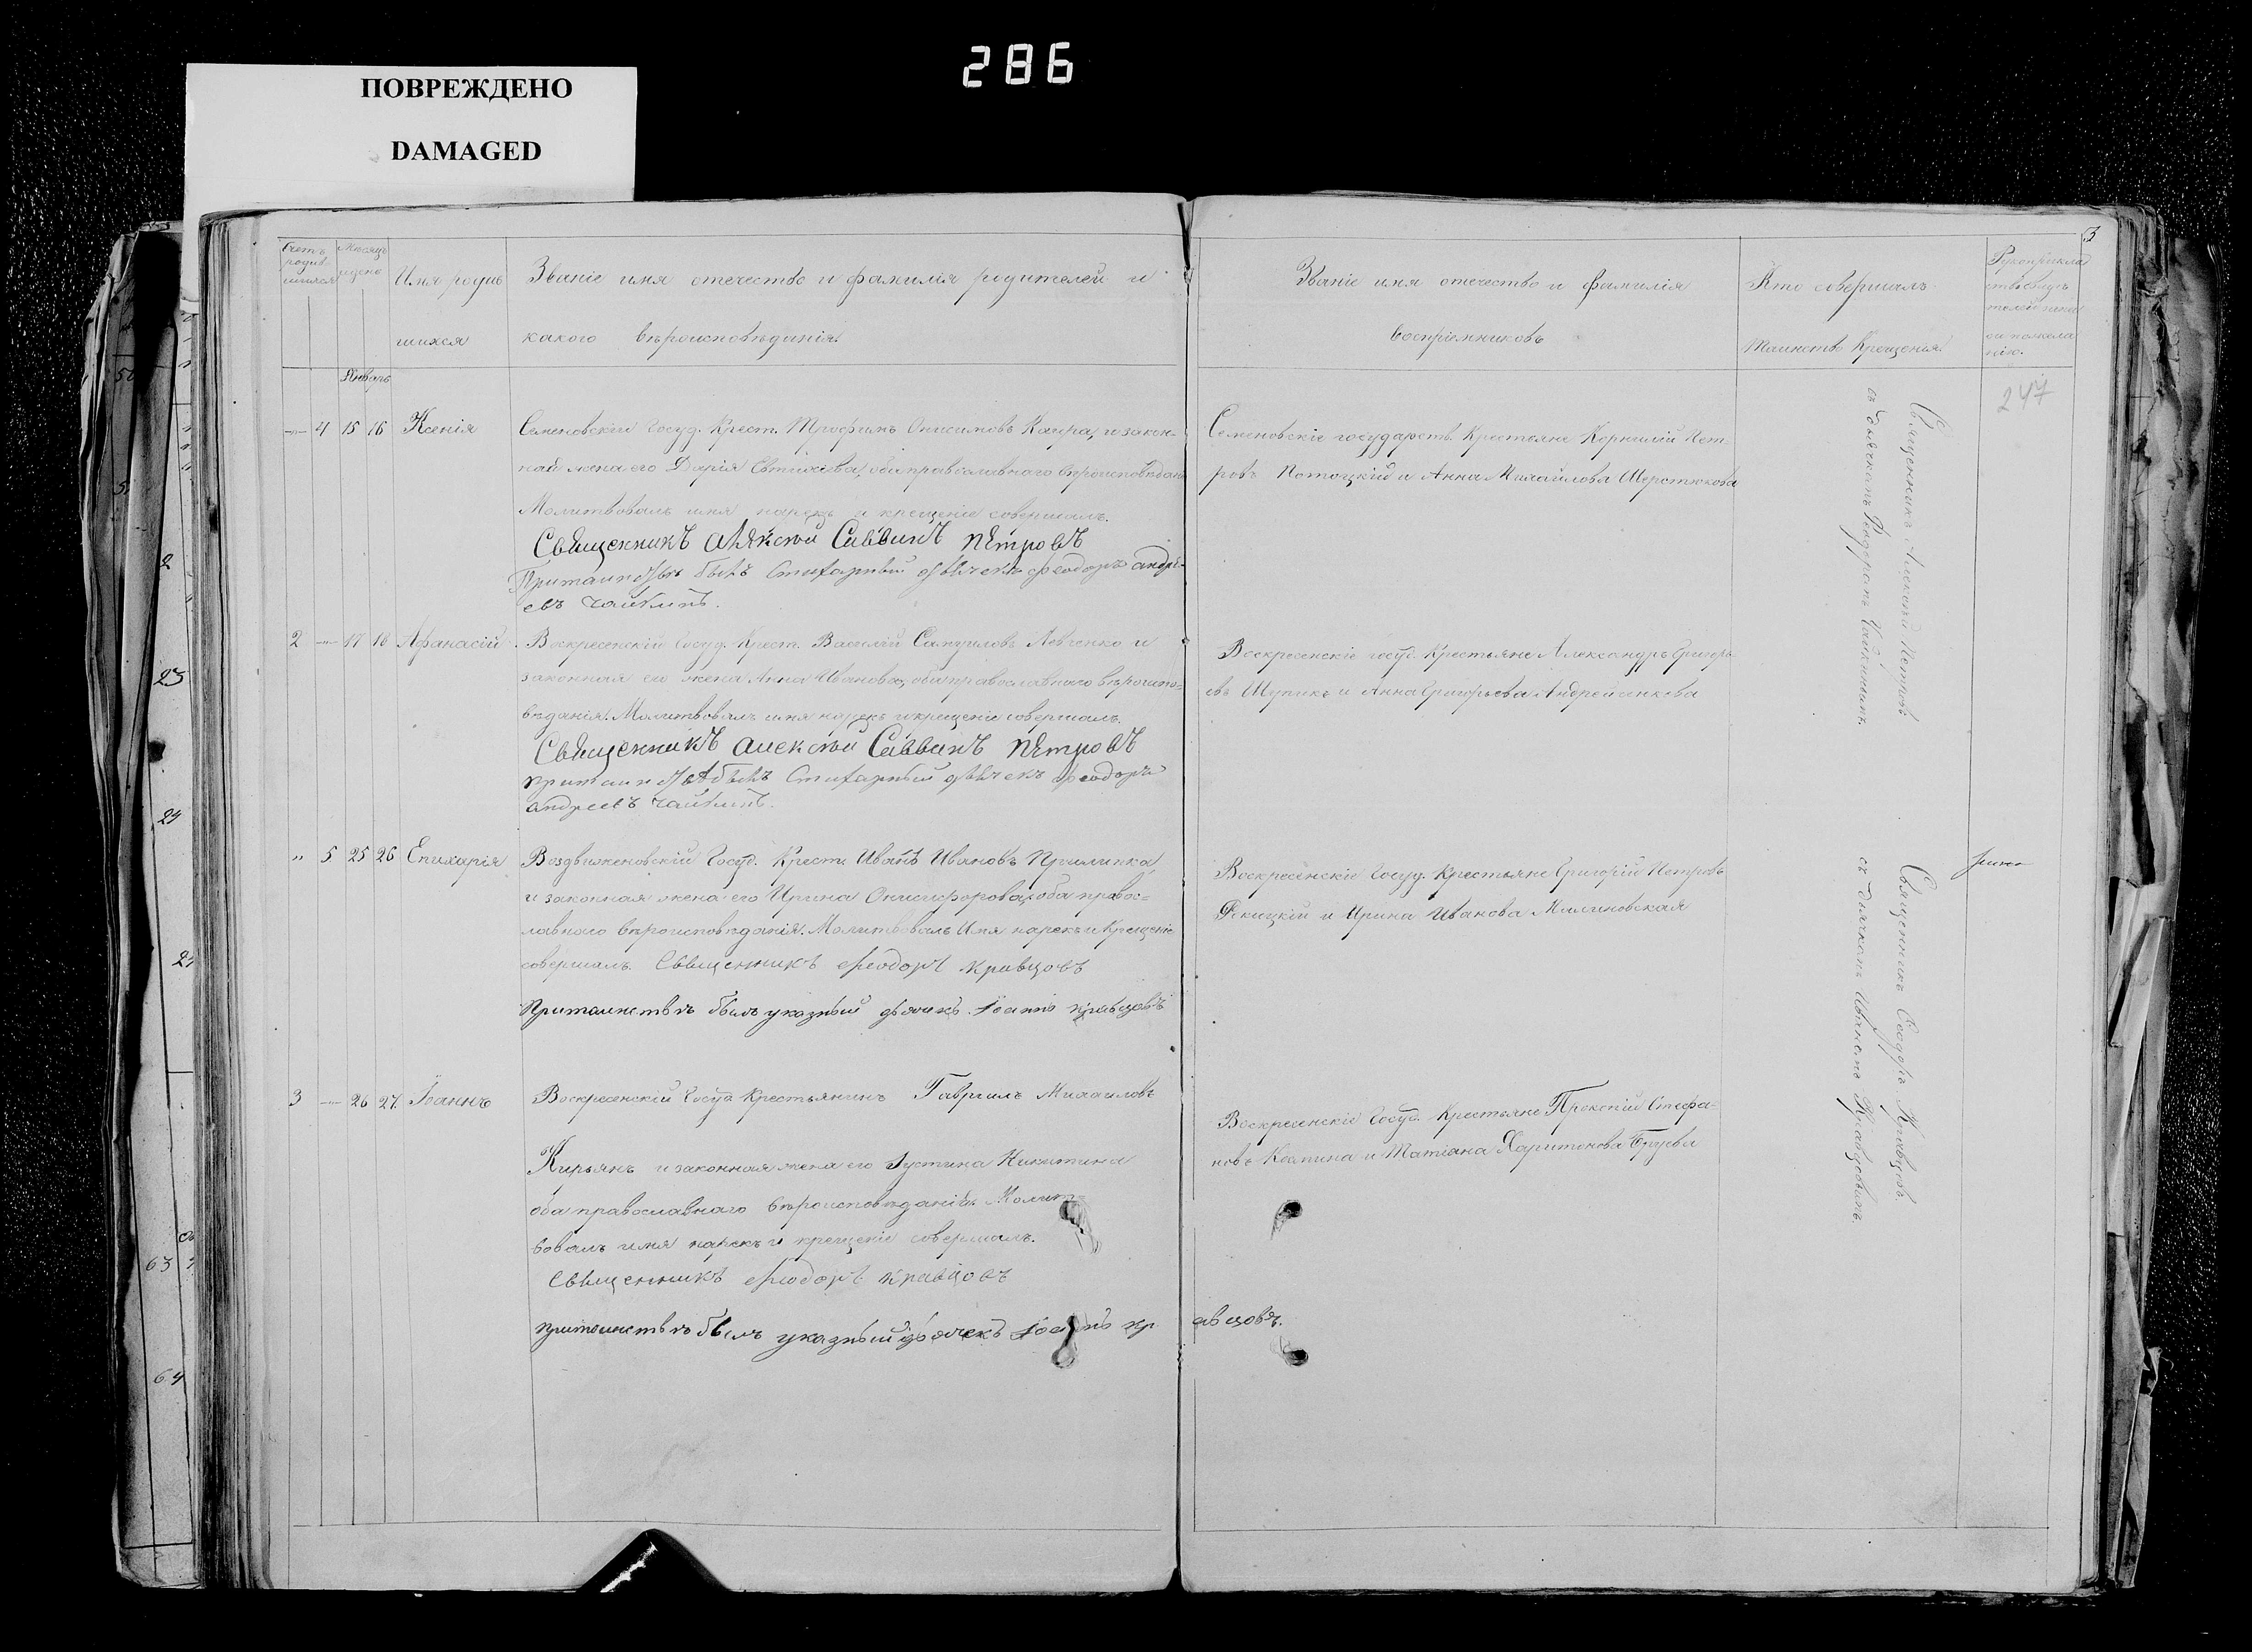 286
ПОВРЕЖДЕНО
DAMAGED
3
Счетъ родив-шихся
Мѣсяцъ и день
Имя родив
шихся
Званіе имя отечество и фамилія родителей и
какого вѣроисповѣданія.
Званіе имя отечество и фамилія
воспріемниковъ
Кто совершалъ
таинство Крещенія.
Рукоприклад
ство свидѣ
телей
по жела
нію.
247
Январь
4 15 16 Ксенія
Семеновскій Госуд. Крест. Трофимъ Онисимовъ и закон-
ная жена его Дарія Евтихіева, оба православнаго вѣроисповѣдан
Молитвовалъ имя нарекъ и крещеніе совершалъ.
Священникъ Алексѣй Саввинъ Петровъ
При таинствѣ былъ Стихарный дьячекъ Феодоръ Андре-
евъ Чайкинъ.
Семеновскіе государств. Крестьяне Корнилій Пет-
ровъ Потоцкій и Анна Михайлова Шерстюкова
Священникъ Алексѣй Петровъ
съ дьячкомъ Феодоромъ Чайкинымъ
2 17 18 Афанасій
Воскресенскій Госуд. Крест. Василій Самуиловъ Левченко и
законная его жена Анна Иванова, оба православнаго вѣроиспо-
вѣданія. Молитвовалъ имя нарекъ и крещеніе совершалъ.
Священникъ Алексѣй Саввинъ Петровъ
При таинствѣ былъ Стихарный дьячекъ Феодоръ
Андреевъ Чайкинъ.
Воскресенскіе госуд. Крестьяне Александръ Григорь
евъ Шупикъ и Анна Григорьева Андрейчикова
5 25 26 Епихарія
Воздвиженовскій Госуд. Крест. Иванъ Ивановъ Прилипка
и законная жена его Ирина Онисифорова, оба право-
славнаго вѣроисповѣданія. Молитвовалъ Имя нарекъ и Крещеніе
совершалъ. Священникъ Феодоръ Кравцовъ
При таинствѣ былъ указный дьячекъ Іоаннъ Кравцовъ
Воскресенскіе Госуд. Крестьяне Григорій Петровъ
и Ирина Иванова Малиновская
Священникъ Феодоръ Кравцовъ
съ дьячкомъ Иваномъ Кравцовымъ
3 26 27 Іоаннъ
Воскресенскій Госуд. Крестьянинъ Гавріилъ Михаиловъ
Кирьянъ и законная жена его Іустина Никитина
оба православнаго вѣроисповѣданія. Молит-
вовалъ имя нарекъ и крещеніе совершалъ.
Священникъ Феодоръ Кравцовъ
При таинствѣ былъ указный дьячекъ Іоаннъ Кр авцовъ.
Воскресенскіе Госуд. Крестьяне Стефа-
новъ и Татіана Харитонова